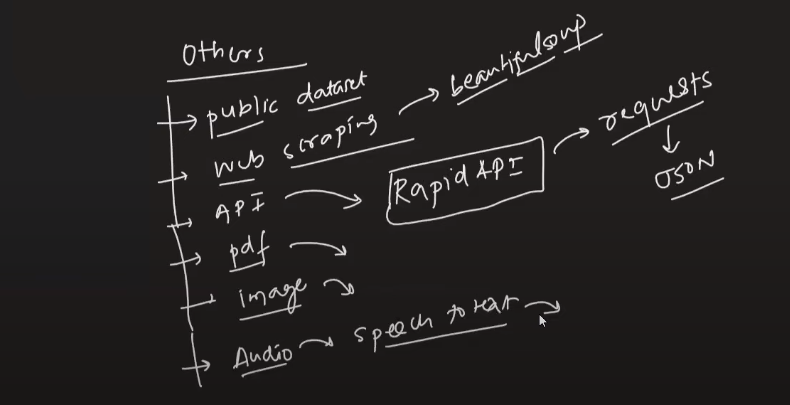 Others
public dataset
web scraping → beautifulsoup
API → Rapid API → requests
JSON
pdf →
image →
Audio → speech to text →